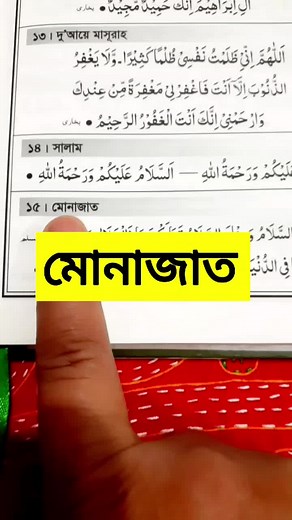 اٰلِ اِبْرَاهِيْمَ اِنَّكَ حَمِيْدٌ مَّجِيْدٌ ● بخاری
১৩। দু‘আয়ে মাসূরাহ
اَللّٰهُمَّ اِنِّىْ ظَلَمْتُ نَفْسِىْ ظُلْمًا كَثِيْرًا۔ وَّلَا يَغْفِرُ
الذُّنُوْبَ اِلَّا اَنْتَ فَاغْفِرْ لِىْ مَغْفِرَةً مِّنْ عِنْدِكَ
وَارْحَمْنِىْ اِنَّكَ اَنْتَ الْغَفُوْرُ الرَّحِيْمُ ● بخاری
১৪। সালাম
عَلَيْكُمْ وَرَحْمَةُ اللّٰهِ — اَلسَّلَامُ عَلَيْكُمْ وَرَحْمَةُ اللّٰهِ ●
১৫। মোনাজাত
السَّلَامُ
মোনাজাত
فِى الدُّنْيَا